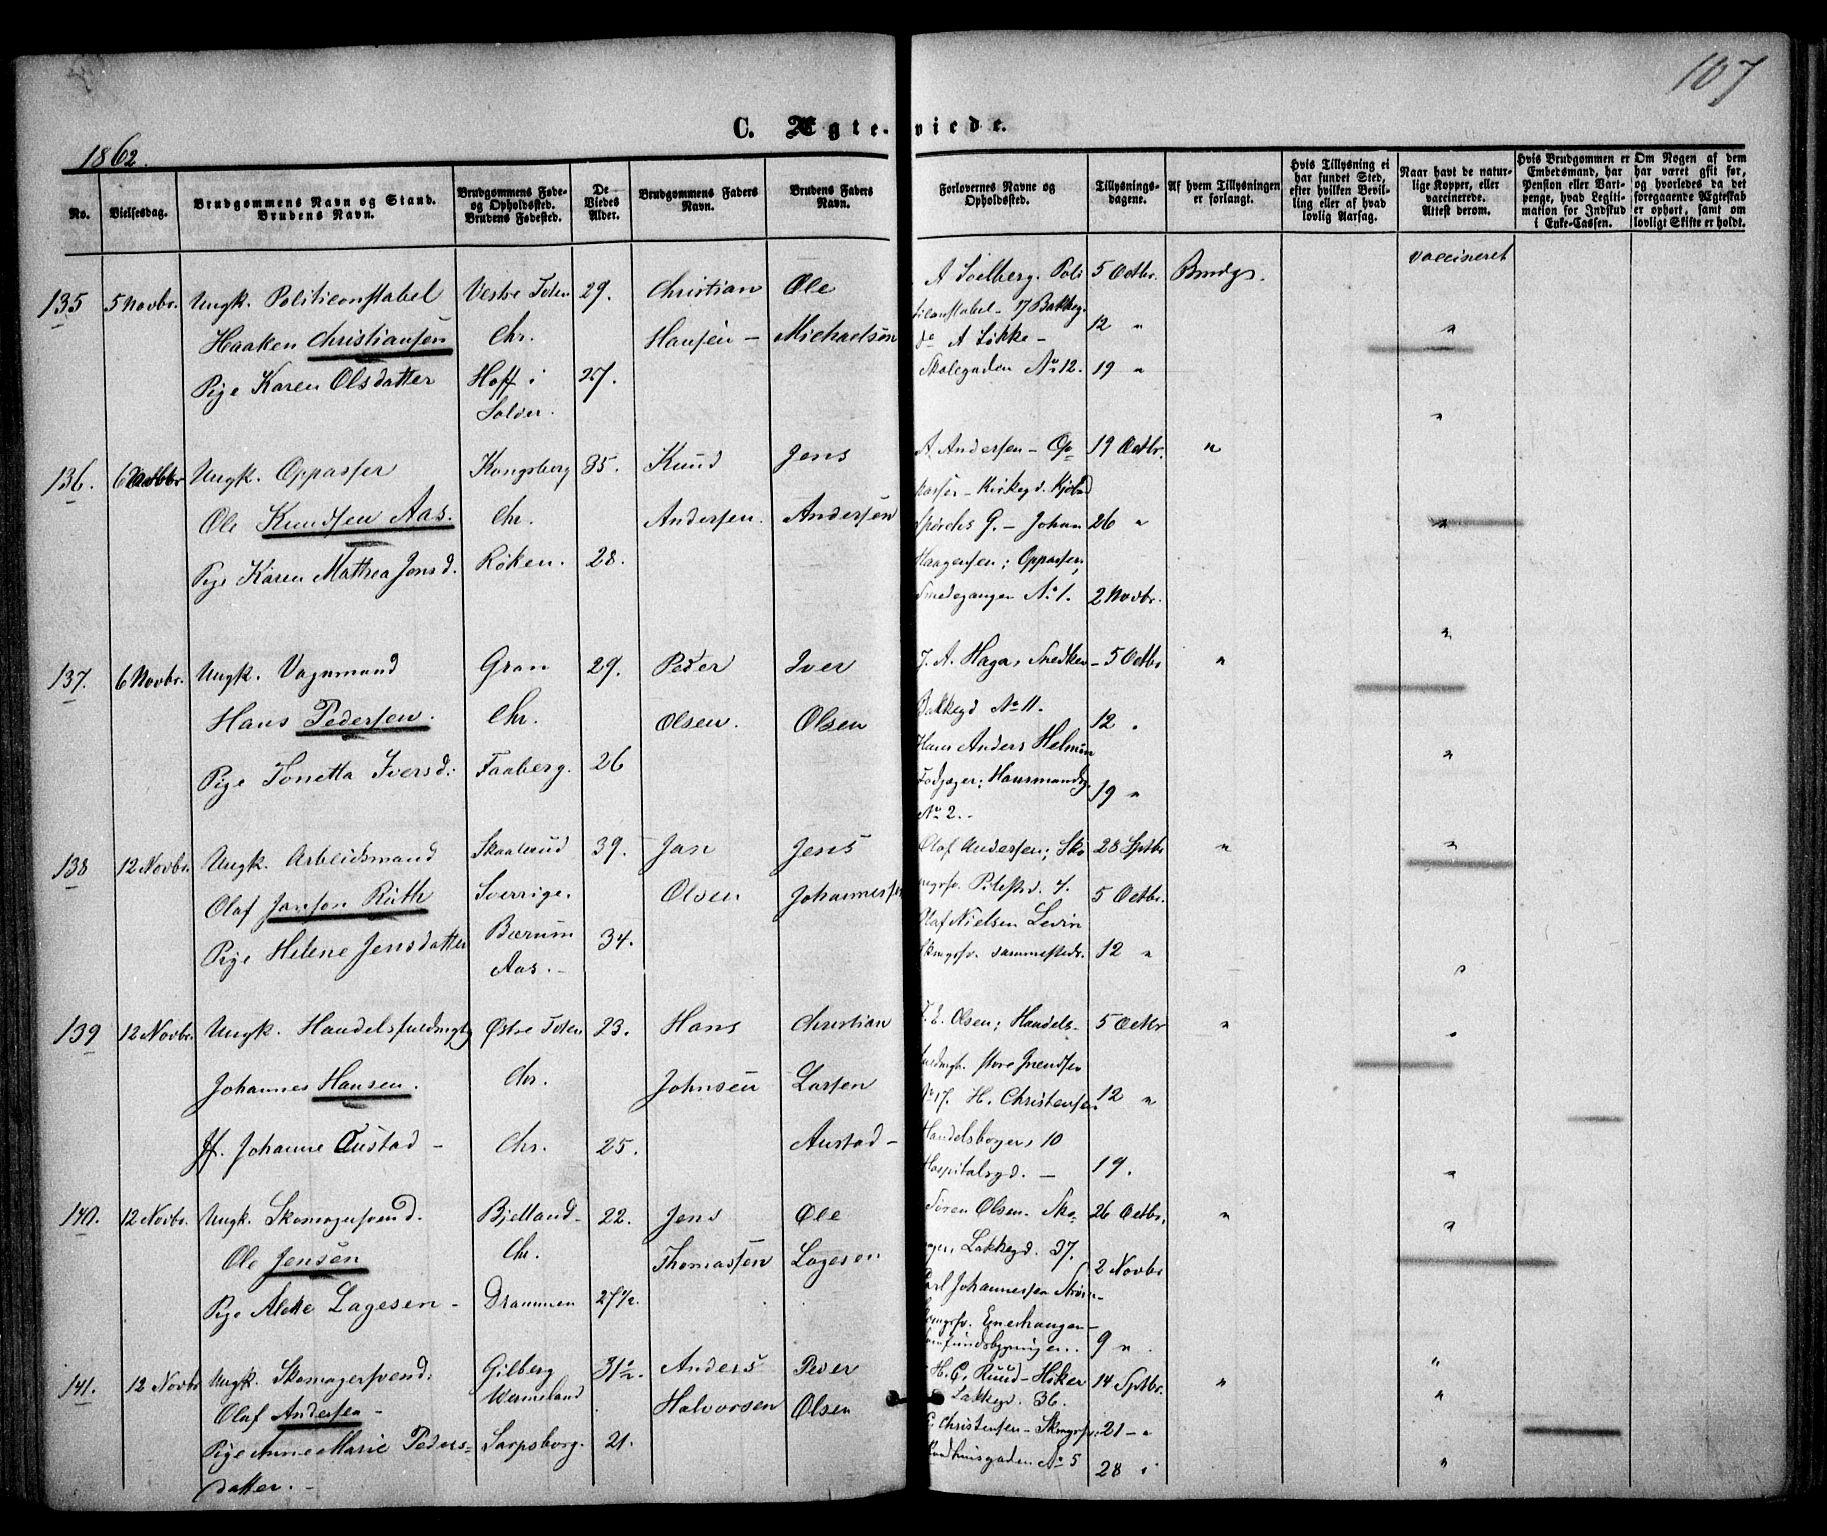 107
C. Ægte- viede.
1862.
No.
Vielsesdag.
Brudgommens Navn og Stand.
Brudens Navn.
Brudgommens Føde-
og Opholdssted.
Brudens Fødested.
De
Viedes
Alder.
Brudgommens Faders
Navn.
Brudens Faders
Navn.
Forlovernes Navne og
Opholdssted.
Tillysnings-
dagene.
Af hvem Tillysningen
er forlangt.
Hvis Tillysning ei
har fundet Sted,
efter hvilken Bevil-
ling eller af hvad
lovlig Aarsag.
Naar havt de natur-
lige Kopper, eller
vaccinerede.
Attest derom.
Hvis Brudgommen er
Embedsmand, har
Pension eller Vart-
penge, hvad Legiti-
mation for Indskud
i Enke-Cassen.
Om Nogen af dem
har været gift før,
og hvorledes da det
foregaaende Ægteskab
er ophørt, samt om
lovligt Skifte er holdt.
135 5 Novbr. Ungk. Politiconstabel Vestre Toten 29. Christian Ole A Soelberg. Poli 5 Octbr. Brudgs. vaccineret
Haaken Christiansen Chr. Hansen - Michaelsen ticonstabel - 17 Bakkeg. 12 "
A Løkke -
Pige Karen Olsdatter Hoff i 27. Skolegaden No 12. 19 "
Solør.
136. 6 Novbr. Ungk. Oppasser Kongsberg 35. Knud Jens A. Andersen - Op 19 Octbr. "
passer - Kirkegd.
Ole Knudsen Aas. Chr. Andersen. Andersen G. - Johan 26 "
Pige Karen Mathea Jensd. Røken. 28. Haagensen; Oppasser,
Smedegangen No 1. 2 Novbr.
137. 6 Novbr. Ungk. Vognmand Gran 29. Peder Iver J. A. Haga, Snedker - 5 Octbr "
Hans Pedersen. Chr. Olsen. Olsen Bakkegd No 11. 12 "
Hans Anders
Pige Tonetta Iversd. Faaberg. 26 Hausmandsg. 19 "
No 2. -
138 12 Novbr. Ungk. Arbeidsmand 39. Jan Jens Olof Andersen; Sko 28 Sptbr "
Olaf Janson Rüth Sverrige. Olsen Johannessen Pilestrd. 7. 5 Octbr.
Olaf Nielsen Levin
Pige Helene Jensdatter Bærum 34. sammesteds. 12 "
Aas. -
139 12 Novbr. Ungk. Handelsfuldmgtg Østre Toten 23. Hans Christian J. E. Olsen; Handels- 5 Octbr "
fuldmgt. store Grendsen
Johannes Hansen. Chr. Johnsen Larsen No 17. H. Christensen 12 "
Jf. Johanne Austad - Chr. 25. Austad - Handelsborger, 10
Hospitalsgd. - 19.
140. 12 Novbr. Ungk. Skomagersvend. Bjelland - 22. Jens Ole Søren Olsen. Sko- 26 Octbr. "
Ole Jensen Chr. Thomassen Lagesen mager, Lakkegd. 37. 2 Novbr
Carl Johannessen
Pige Aleke Lagesen - Drammen 27½. Enerhaugen -
9 "
141. 12 Novbr Ungk. Skomagersvend. Gilberg 31½. Anders Peder H. C. Ruud - Høker 14 Sptbr. "
Olaf Andersen - Wermeland Halvorsen Olsen Lakkegd. 36.
Christensen - Skmgrsv. 21 - "
Pige Anne Marie Peders- Sarpsborg. 21. Raadhuusgaden No 5
datter. - 28 "